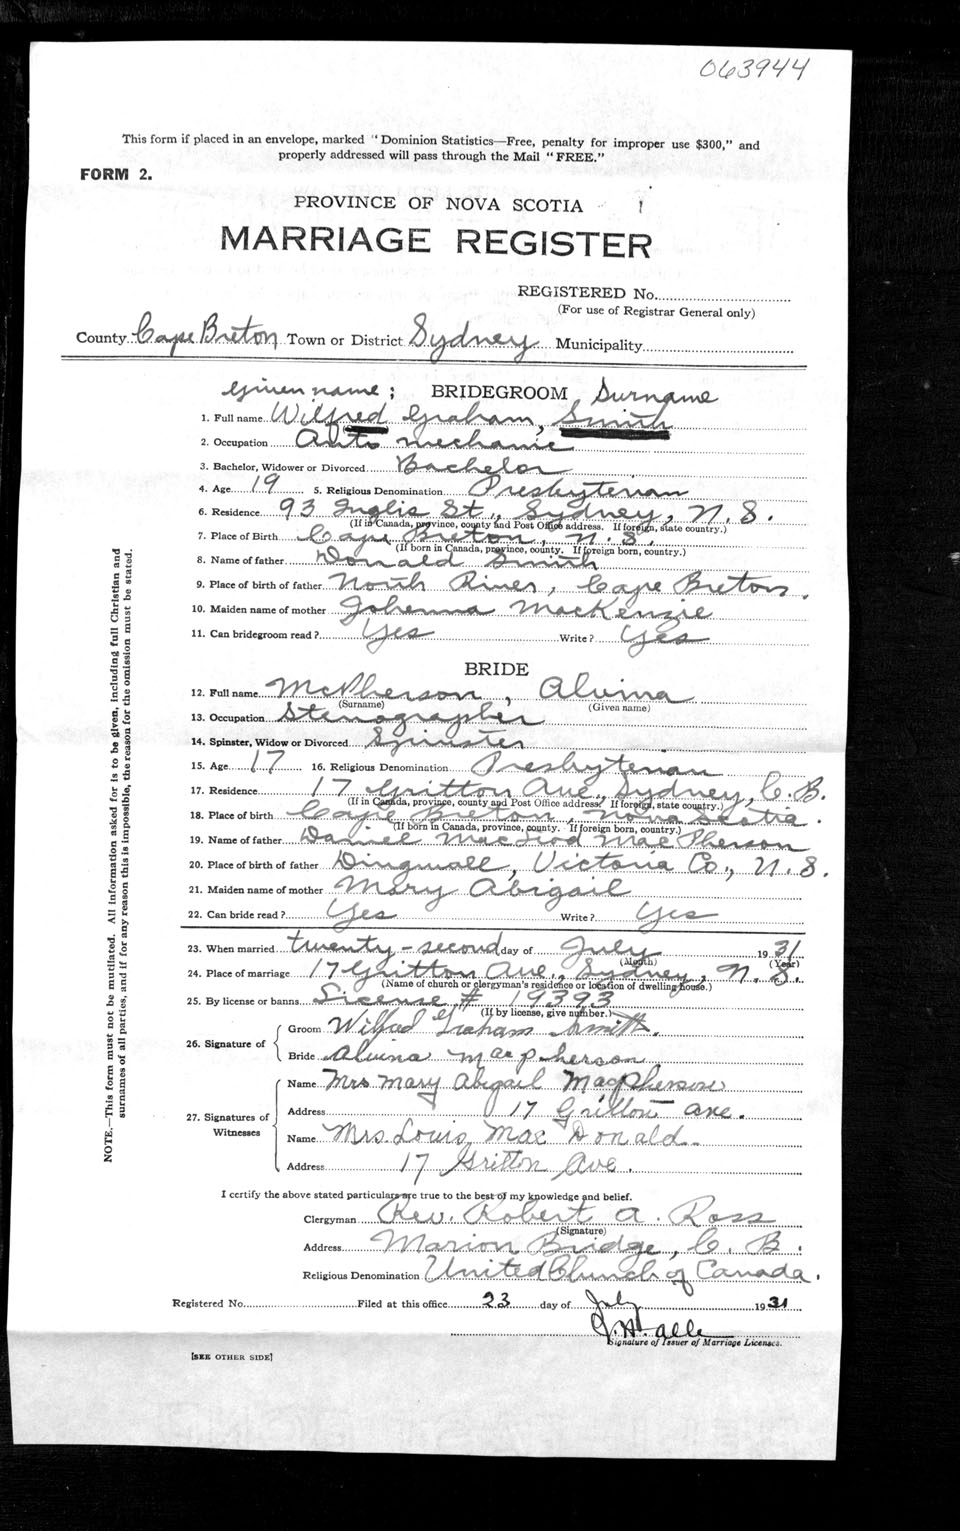 063944
This form if placed in an envelope, marked "Dominion Statistics—Free, penalty for improper use $300," and
properly addressed will pass through the Mail "FREE."
FORM 2.
PROVINCE OF NOVA SCOTIA
MARRIAGE REGISTER
REGISTERED No.
(For use of Registrar General only)
County Cape Breton Town or District Sydney Municipality
Given name; BRIDEGROOM Surname
1. Full name Wilfred Graham, Smith
2. Occupation Auto mechanic
3. Bachelor, Widower or Divorced Bachelor
4. Age 19 5. Religious Denomination Presbyterian
6. Residence 93 Inglis St., Sydney, N.S.
(If in Canada, province, county and Post Office address. If foreign, state country.)
7. Place of Birth Cape Breton, N.S.
(If born in Canada, province, county. If foreign born, country.)
8. Name of father Donald Smith
9. Place of birth of father North River, Cape Breton.
10. Maiden name of mother Johenna MacKenzie
11. Can bridegroom read? Yes Write? Yes
BRIDE
12. Full name McPherson, Alvina
(Surname) (Given name)
13. Occupation Stenographer
14. Spinster, Widow or Divorced Spinster
15. Age 17 16. Religious Denomination Presbyterian
17. Residence 17 Gritton Ave., Sydney, C.B.
(If in Canada, province, county and Post Office address. If foreign, state country.)
18. Place of birth Cape Breton, Nova Scotia.
(If born in Canada, province, county. If foreign born, country.)
19. Name of father Daniel MacLeod MacPherson
20. Place of birth of father Dingwall, Victoria Co., N.S.
21. Maiden name of mother Mary Abigail
22. Can bride read? Yes Write? Yes
23. When married twenty-second day of July 1931
(Month) (Year)
24. Place of marriage 17 Gritton Ave., Sydney, N.S.
(Name of church or clergyman's residence or location of dwelling house.)
25. By license or banns License # 19393
(If by license, give number.)
26. Signature of
Groom Wilfred Graham Smith.
Bride Alvina Macpherson
27. Signatures of Witnesses
Name Mrs Mary Abigail MacPherson
Address 17 Gritton Ave.
Name Mrs. Louis MacDonald
Address 17 Gritton Ave.
I certify the above stated particulars are true to the best of my knowledge and belief.
Clergyman Rev. Robert A. Ross
(Signature)
Address Marion Bridge, C.B.
Religious Denomination United Church of Canada.
Registered No. Filed at this office 23 day of July 1931
Signature of Issuer of Marriage Licenses.
[SEE OTHER SIDE]
NOTE.—This form must not be mutilated. All information asked for is to be given, including full Christian and
surnames of all parties, and if for any reason this is impossible, the reason for the omission must be stated.